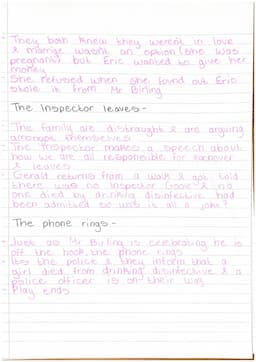 - They both knew they weren't in love
& marrige wasnt an option (she was
pregnant) but Eric wanted to give her
money
- She refused when she found out Eric
stole it from Mr Birling
The Inspector leaves -
- The family are distraught & are arguing
amongst themselves
- The Inspector makes a speech about
how we are all responsible for eachover
& leaves
- Gerald returns from a walk & got told
there was no Inspector Goole & no
one died by drinking disinfective & had
been admitted so was it all a joke?
The phone rings -
- Just as Mr Birling is celebrating he is
off the hook, the phone rings
- Its the police & they inform that a
girl died from drinking disinfective & a
police officer is on their way
- Play ends